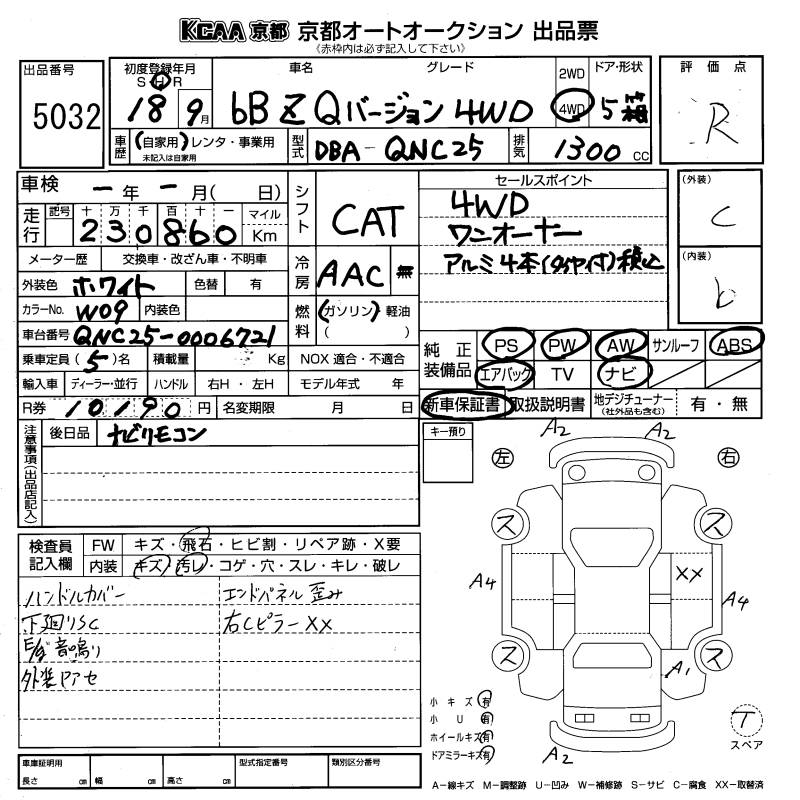 KCAA 京都 京都オートオークション 出品票
《赤枠内は必ず記入して下さい》
出品番号
5032
初度登録年月 車名 グレード
S H R
18 9月
bB Z Qバージョン 4WD
2WD
4WD
ドア・形状
5 箱
評価点
R
車歴 (自家用) レンタ・事業用
未記入は自家用
型式 DBA-QNC25
排気 1300 cc
車検 一年一月( 日)
走行 記号 十 万 千 百 十 一 マイル
230860 Km
メーター歴 交換車・改ざん車・不明車
外装色 ホワイト 色替 有
カラーNo. W09 内装色
車台番号 QNC25-0006721
乗車定員(5)名 積載量 Kg
輸入車 ディーラー・並行 ハンドル 右H・左H
R券 10190円 名変期限 月 日
シフト CAT
冷房 AAC 無
燃料 (ガソリン) 軽油
( )
NOX 適合・不適合
モデル年式 年
セールスポイント
4WD
ワンオーナー
アルミ4本(タイヤ付)積込
(外装)
C
(内装)
b
純正装備品 PS PW AW サンルーフ ABS
エアバック TV ナビ
新車保証書 取扱説明書 地デジチューナー
(社外品も含む) 有・無
注意事項(出品店記入)
後日品 ナビリモコン
キー預り
検査員記入欄 FW キズ・飛石・ヒビ割・リペア跡・X要
内装 キズ・汚レ・コゲ・穴・スレ・キレ・破レ
ハンドルカバー
下廻りSC
音鳴り
エンドパネル 歪み
右Cピラー XX
A2 A2
左 右
ス ス
XX
A4 A4
ス ス
A1
A2
小キズ 有
小U 有
ホイールキズ 有
ドアミラーキズ 有
T
スペア
車庫証明用
長さ cm 幅 cm 高さ cm
型式指定番号
類別区分番号
A-線キズ M-調整跡 U-凹み W-補修跡 S-サビ C-腐食 XX-取替済